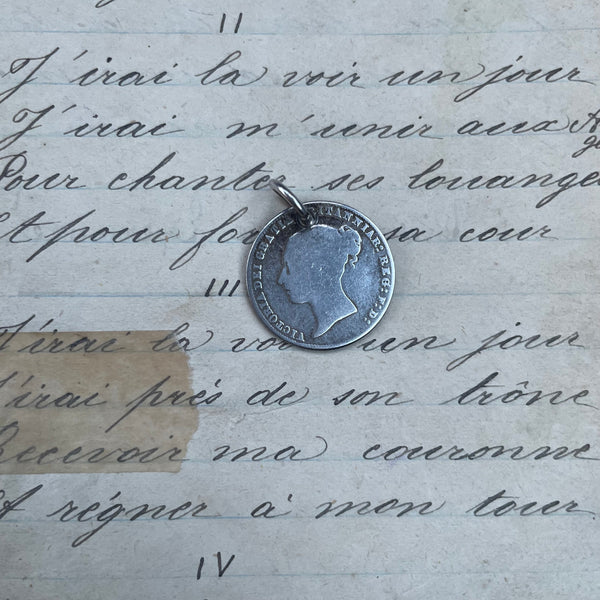 II
J'irai la voir un jour
J'irai m'unir aux
Pour chanter ses louanges
Et pour sa cour
VICTORIA DEI GRATIA BRITANNIAR: REG: F: D:
III
J'irai la voir un jour
J'irai prés de son trône
Recevoir ma couronne
Et régner à mon tour
IV